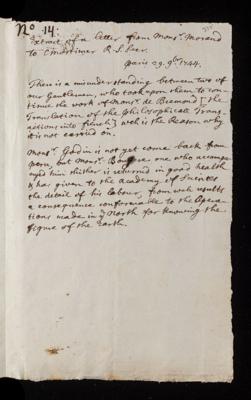 No 14:
Extract of a letter from Monsr. Morand
to C. Mortimer R.S. Secr.
Paris 29. 9br. 1744.
There is a misunderstanding between two of
our Gentlemen, who took upon them to con-
tinue the work of Monsr. de Bremond [the
Translation of the Philosophical Trans
actions into french] wch is the Reason why
it is not carried on.
Monsr. Godin is not yet come back from
Peru, but Monsr. Bouguer one who accompa-
nyed him thither is returned in good health
& has given to the Academy of Sciences
the detail of his labour, from wch results
a consequence conformable to the Opera-
tions made in ye North for knowing the
figure of the Earth.